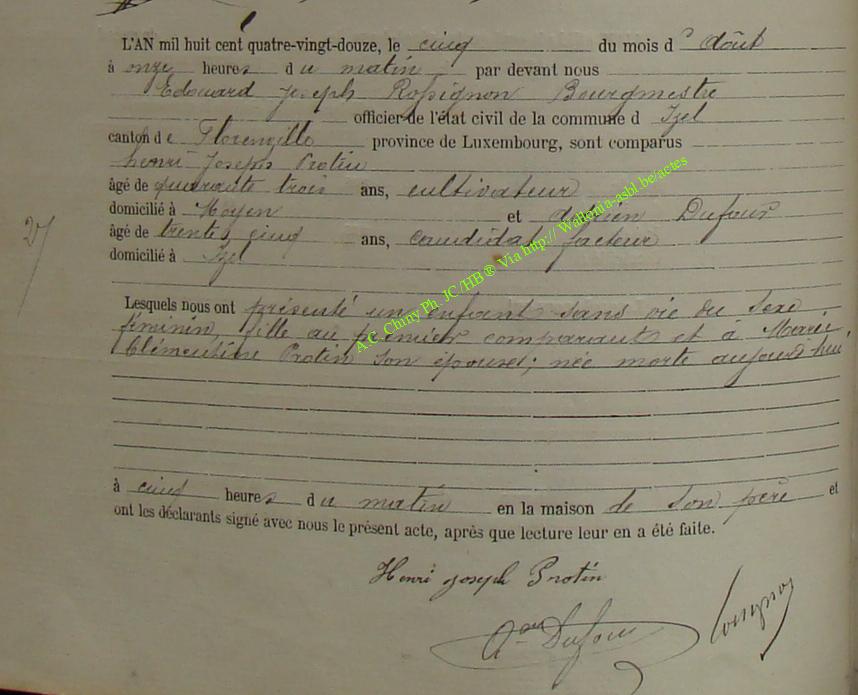 L'AN mil huit cent quatre-vingt-douze, le cinq du mois d'Août
à onze heures du matin par devant nous
Edouard Joseph Rossignon Bourgmestre
officier de l'état civil de la commune d Izel
canton de Florenville province de Luxembourg, sont comparus
henri Joseph Protin
âgé de quarante trois ans, cultivateur
domicilié à Moyen et Adrien Dufour
âgé de trente cinq ans, candidat facteur
domicilié à Izel
27
Lesquels nous ont présenté un enfant sans vie du sexe
féminin fille au premier comparant et à Marie
Clémentine Protin son épouse; née morte aujourd'hui
à cinq heures du matin en la maison de son père et
ont les déclarants signé avec nous le présent acte, après que lecture leur en a été faite.
Henri Joseph Protin
Dufour
A.C. Chiny Ph. JC/HB ® Via http:// Wallonia-asbl.be/actes